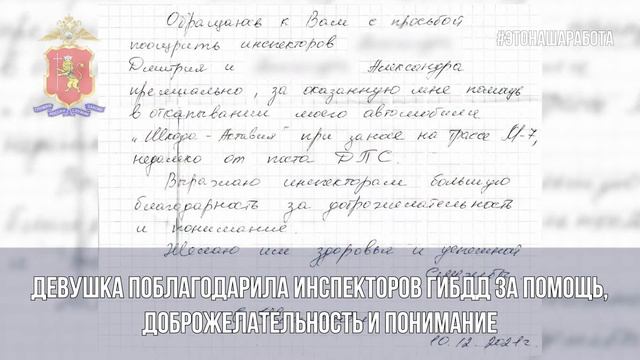 #ЭТОНАШАРАБОТА
Обращаюсь к Вам с просьбой
поощрить инспекторов
Дмитрия и Александра
премиально, за оказанную мне помощь
в откапывании моего автомобиля
„Шкода-Актавия" при заносе на трассе М-7,
недалеко от поста ДПС.
Выражаю инспекторам большую
благодарность за доброжелательность
и понимание.
Желаю им здоровья и успешной
службы
ДЕВУШКА ПОБЛАГОДАРИЛА ИНСПЕКТОРОВ ГИБДД ЗА ПОМОЩЬ,
ДОБРОЖЕЛАТЕЛЬНОСТЬ И ПОНИМАНИЕ
10.12.2021г.